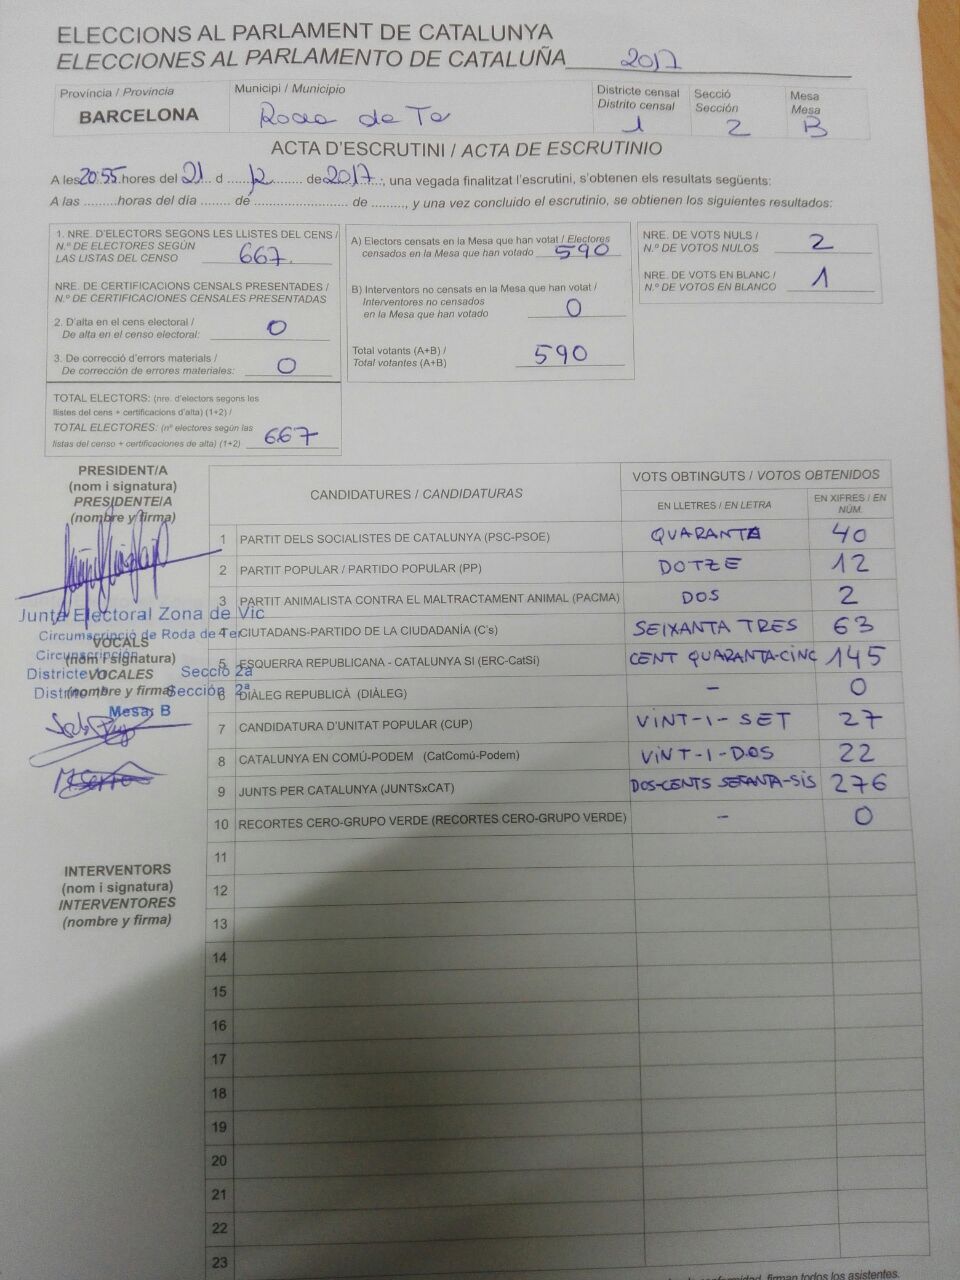 ELECCIONS AL PARLAMENT DE CATALUNYA
ELECCIONES AL PARLAMENTO DE CATALUÑA 2017
Província / Provincia
BARCELONA
Municipi / Municipio
Roda de Ter
Districte censal
Distrito censal
1
Secció
Sección
2
Mesa
Mesa
B
ACTA D'ESCRUTINI / ACTA DE ESCRUTINIO
A les 20:55 hores del 21 d 12 de 2017, una vegada finalitzat l'escrutini, s'obtenen els resultats següents:
A las .........horas del día ........ de ........................ de ........., y una vez concluido el escrutinio, se obtienen los siguientes resultados:
1. NRE. D'ELECTORS SEGONS LES LLISTES DEL CENS /
N.º DE ELECTORES SEGÚN
LAS LISTAS DEL CENSO 667
NRE. DE CERTIFICACIONS CENSALS PRESENTADES /
N.º DE CERTIFICACIONES CENSALES PRESENTADAS
2. D'alta en el cens electoral /
De alta en el censo electoral: 0
3. De correcció d'errors materials /
De corrección de errores materiales: 0
TOTAL ELECTORS: (nre. d'electors segons les
llistes del cens + certificacions d'alta) (1+2) /
TOTAL ELECTORES: (nº electores según las
listas del censo + certificaciones de alta) (1+2) 667
A) Electors censats en la Mesa que han votat / Electores
censados en la Mesa que han votado 590
B) Interventors no censats en la Mesa que han votat /
Interventores no censados
en la Mesa que han votado 0
Total votants (A+B) /
Total votantes (A+B) 590
NRE. DE VOTS NULS /
N.º DE VOTOS NULOS 2
NRE. DE VOTS EN BLANC /
N.º DE VOTOS EN BLANCO 1
PRESIDENT/A
(nom i signatura)
PRESIDENTE/A
(nombre y firma)
Junta Electoral Zona de Vic
Circumscripció de Roda de Ter
Circunscripción
VOCALS
(nom i signatura)
Districte
Secció 2a
VOCALES
Distrito
(nombre y firma)
Sección 2ª
Mesa: B
INTERVENTORS
(nom i signatura)
INTERVENTORES
(nombre y firma)
CANDIDATURES / CANDIDATURAS
VOTS OBTINGUTS / VOTOS OBTENIDOS
EN LLETRES / EN LETRA
EN XIFRES / EN NÚM.
1 PARTIT DELS SOCIALISTES DE CATALUNYA (PSC-PSOE) QUARANTA 40
2 PARTIT POPULAR / PARTIDO POPULAR (PP) DOTZE 12
3 PARTIT ANIMALISTA CONTRA EL MALTRACTAMENT ANIMAL (PACMA) DOS 2
4 CIUTADANS-PARTIDO DE LA CIUDADANÍA (C's) SEIXANTA TRES 63
5 ESQUERRA REPUBLICANA - CATALUNYA SI (ERC-CatSi) CENT QUARANTA-CINC 145
6 DIÀLEG REPUBLICÀ (DIÀLEG) - 0
7 CANDIDATURA D'UNITAT POPULAR (CUP) VINT-I-SET 27
8 CATALUNYA EN COMÚ-PODEM (CatComú-Podem) VINT-I-DOS 22
9 JUNTS PER CATALUNYA (JUNTSxCAT) DOS-CENTS SETANTA-SIS 276
10 RECORTES CERO-GRUPO VERDE (RECORTES CERO-GRUPO VERDE) - 0
11
12
13
14
15
16
17
18
19
20
21
22
23
conformidad, firman todos los asistentes.